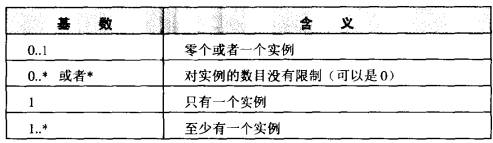 基 数 含 义
0..1 零个或者一个实例
0..* 或者* 对实例的数目没有限制（可以是0）
1 只有一个实例
1..* 至少有一个实例